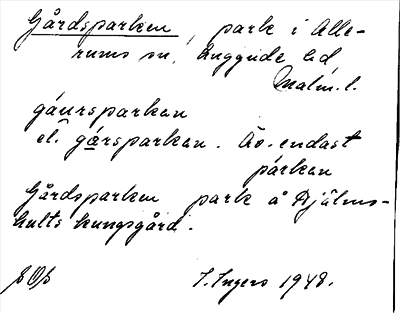 Gårdsparken, park i Alle-
rums sn, Luggude hd
Malm. l.
gáursparkan
el. gǽrsparkan. Äv. endast
párkan
Gårdsparken park å Hjälms-
hults kungsgård.
I. Ingers 1948.